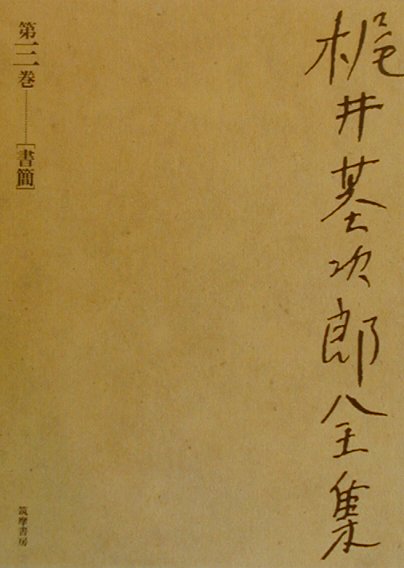 梶井基次郎全集
第三巻────［書簡］
筑摩書房